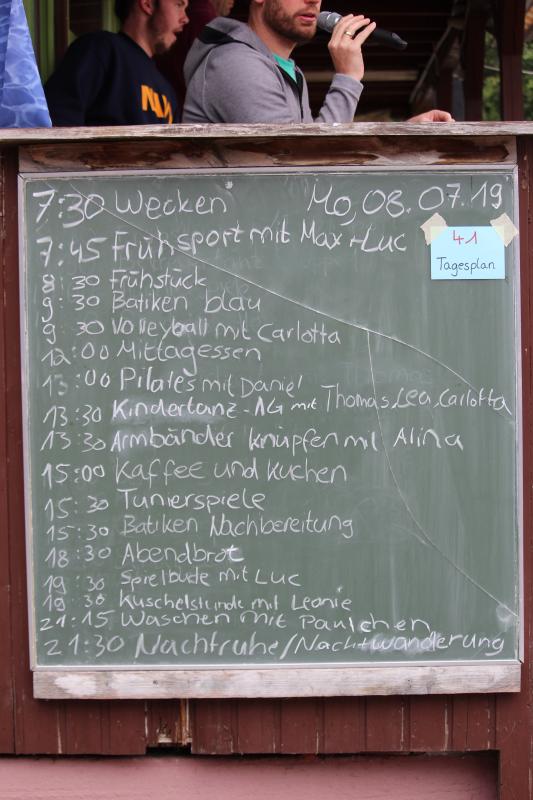 7:30 Wecken Mo, 08.07.19
7:45 Frühsport mit Max + Luc
41
Tagesplan
8:30 Frühstück
9:30 Batiken blau
9:30 Volleyball mit Carlotta
12:00 Mittagessen
13:00 Pilates mit Daniel
13:30 Kindertanz-AG mit Thomas, Lea, Carlotta
13:30 Armbänder knüpfen mit Alina
15:00 Kaffee und Kuchen
15:30 Tunierspiele
15:30 Batiken Nachbereitung
18:30 Abendbrot
19:30 Spielbude mit Luc
19:30 Kuschelstunde mit Leonie
21:15 Waschen mit Paulchen
21:30 Nachtruhe/Nachtwanderung